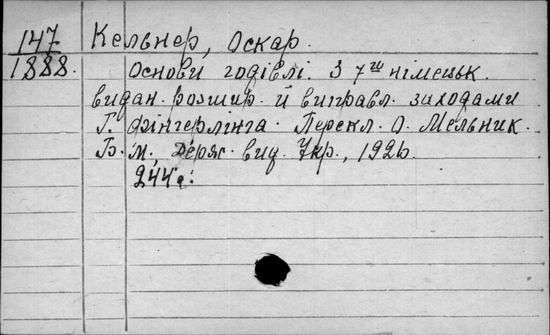 147 Кельнер, Оскар.
1888. Основи годівлі. З 7ш німецьк.
видан. розшир. й виправл. заходами
Г. Фінгерлінга. Перекл. О. Мельник.
Б. м., Держ. вид. Укр., 1926.
244с.